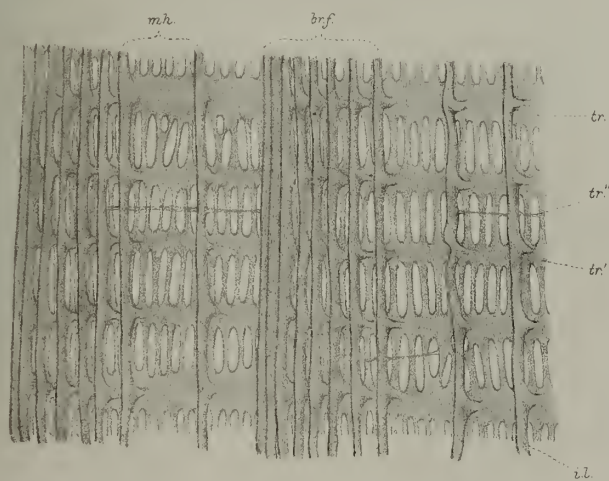 mh. brf.
tr.
tr."
tr.'
i.l.